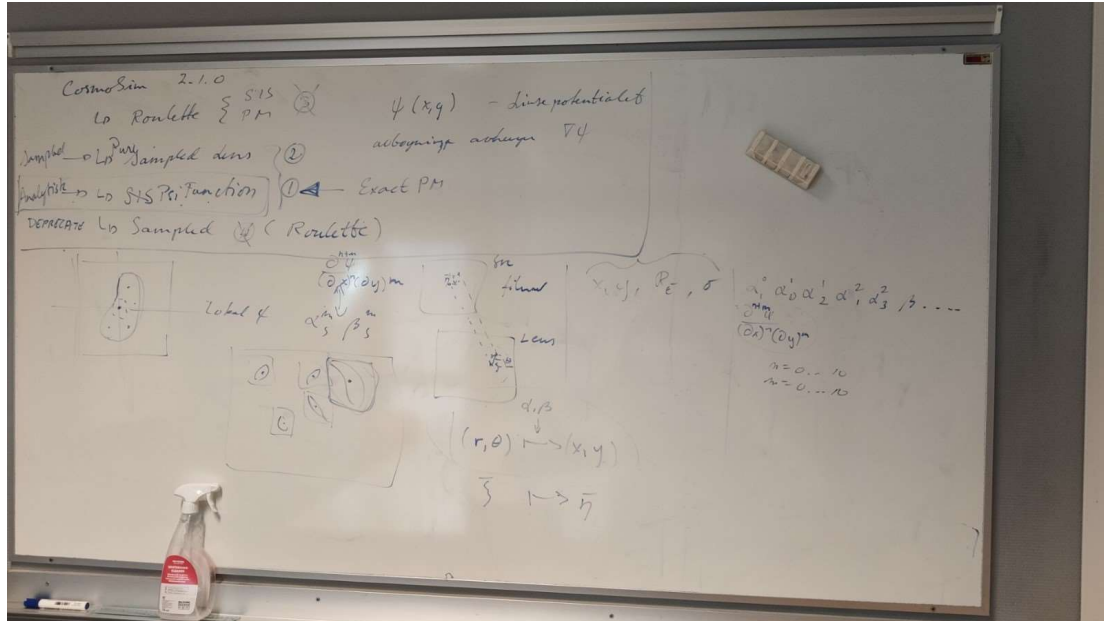 CosmoSim 2.1.0
Roulette { SIS ③
PM
Sampled → Pure Sampled Lens ②
Analytisk → SIS Psi Function ① ◄ — Exact PM
DEPRECATE Sampled (Roulette)
ψ(x,y) – Linsepotentialet
∇ψ
Lokal ψ
∂ⁿ⁺ᵐψ
(∂x)ⁿ(∂y)ᵐ
αₛᵐ βₛᵐ
Lens
α, β
(r, θ) ↦ (x, y)
ξ̄ ↦ η̄
x, y, R_E, σ
α₁⁰ α₀¹ α₂¹ α₁² α₃² β ....
(∂x)ⁿ(∂y)ᵐ
n=0...10
m=0...10